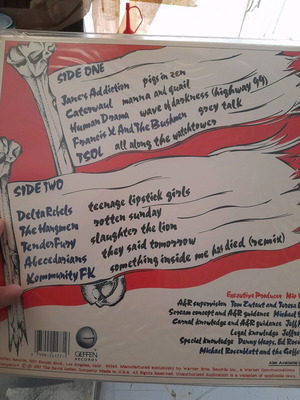 SIDE ONE
Janes Addiction pigs in zen
Caterwaul manna and quail
Human Drama wave of darkness (highway 99)
Francis X And The Bushmen grey talk
TSOL all along the watchtower
SIDE TWO
Delta Rebels teenage lipstick girls
The Hangmen rotten sunday
Tender Fury slaughter the lion
Abecedarians they said tomorrow
Kommunity FK something inside me has died (remix)
Executive Producer
A&R supervision Tom Zutaut and Teresa
Scream concept and A&R guidance Michael
Carnal knowledge and A&R guidance Jeff
Legal knowledge Jeffr
Special knowledge Danny Heaps, Ed Ros
Michael Rosenblatt and the Geffe
GEFFEN
RECORDS
Also Available
Manufactured exclusively by Warner Bros. Records Inc., a Warner Communications
1987 The David Geffen Company Made in U.S.A. All Rights Reserved. Unauthorized duplication is a violation of applicable laws.